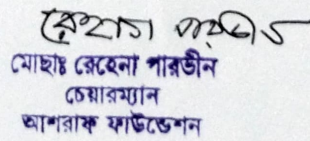 রেহেনা পারভীন
মোছাঃ রেহেনা পারভীন
চেয়ারম্যান
আশরাফ ফাউন্ডেশন